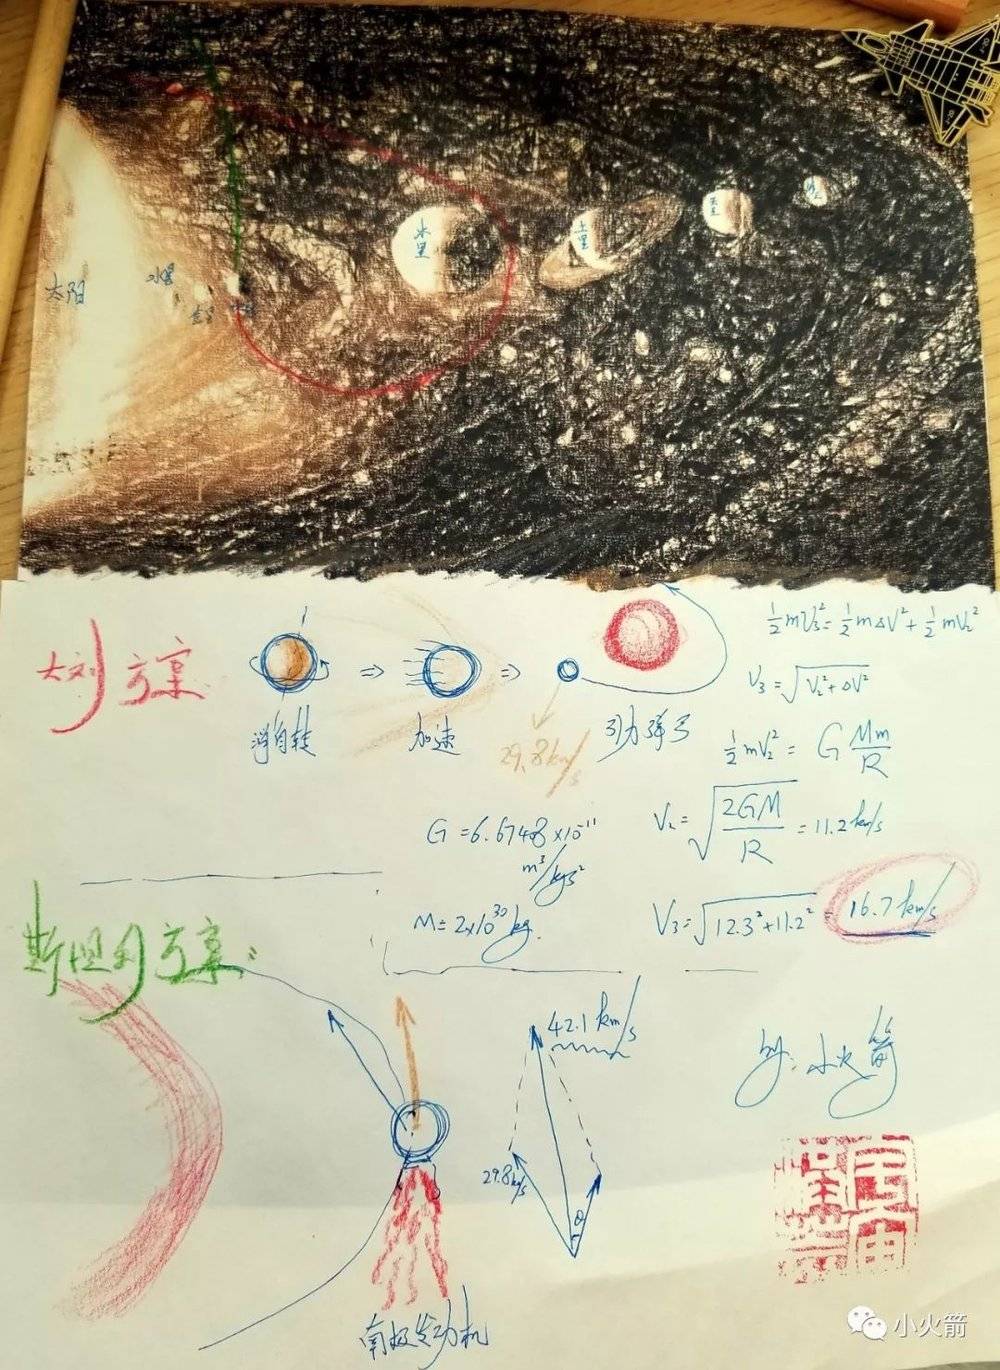 太阳
水星
金星
木星
土星
天王
海王
大刘方案
消自转
⇒
加速
⇒
29.8km/s
引力弹弓
½mV₃² = ½mΔV² + ½mV₂²
V₃ = √(V₂²+ΔV²)
½mV₂² = G Mm/R
V₂ = √(2GM/R) = 11.2km/s
G = 6.6748×10⁻¹¹
m³/kgs²
M = 2×10³⁰kg.
V₃ = √(12.3²+11.2²) = 16.7km/s
斯坦列方案:
42.1km/s
29.8km/s
θ
南极发动机
by: 小火箭
小火箭